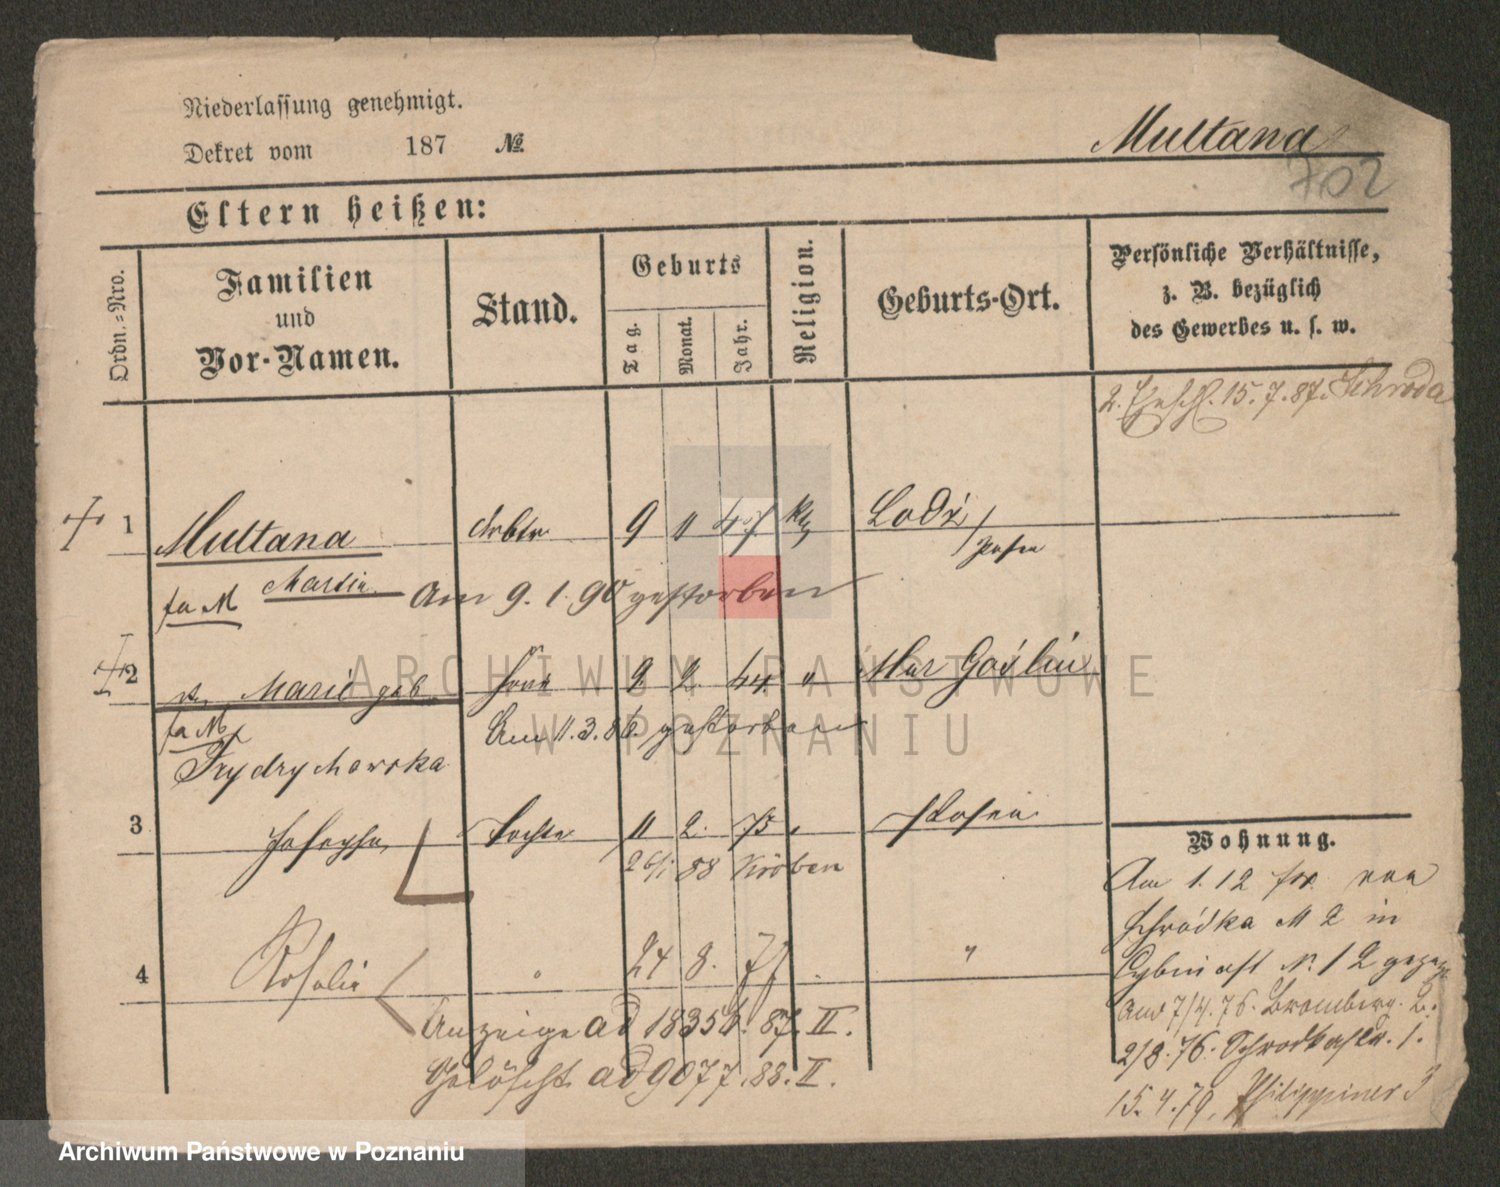 Niederlassung genehmigt.
Dekret vom 187 №
Multana
702
Eltern heißen:
Ordn.-Nro.
Familien
und
Vor-Namen.
Stand.
Geburts
Tag.
Monat.
Jahr.
Religion.
Geburts-Ort.
Persönliche Verhältnisse,
z. B. bezüglich
des Gewerbes u. s. w.
15.7.87. Schroda
1 Multana Arbtr 9 11 47 kth Lodź
Posen
Martin Am 9.1.90 gestorben
2 Marie geb. Frau 2 2. 44 " Mur Goślin
Am 11.3.86. gestorben
Frydrychowska
3 Josepha, Tochter 11 2. 75 " Posen
26/1 88 Kröben
4 Rosalie " 24 8. 77 "
Anzeige ad 1835 87. II.
Gelöscht ad 9077.88. II.
Wohnung.
Am 1.12 von
Schrodka № 2 in
Cybina № 12
7/4.76. Bromberg. 2.
2/8.76. Schrodka 1.
15.4.79. Philippiner 3
ARCHIWUM PAŃSTWOWE
W POZNANIU
Archiwum Państwowe w Poznaniu